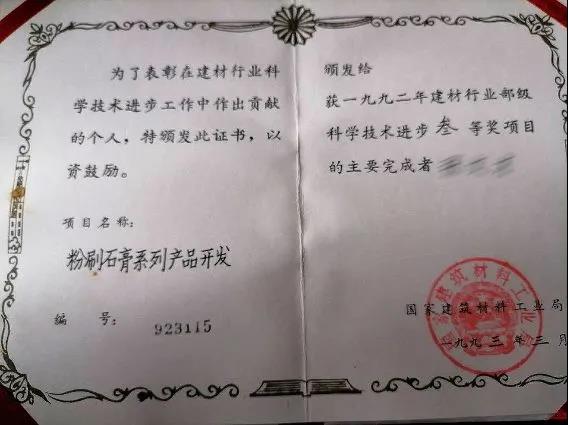 为了表彰在建材行业科
学技术进步工作中作出贡献
的个人，特颁发此证书，以
资鼓励。
项目名称：
粉刷石膏系列产品开发
编 号：
923115
颁发给
获一九九二年建材行业部级
科学技术进步叁等奖项目
的主要完成者
国家建筑材料工业局
一九九三年三月